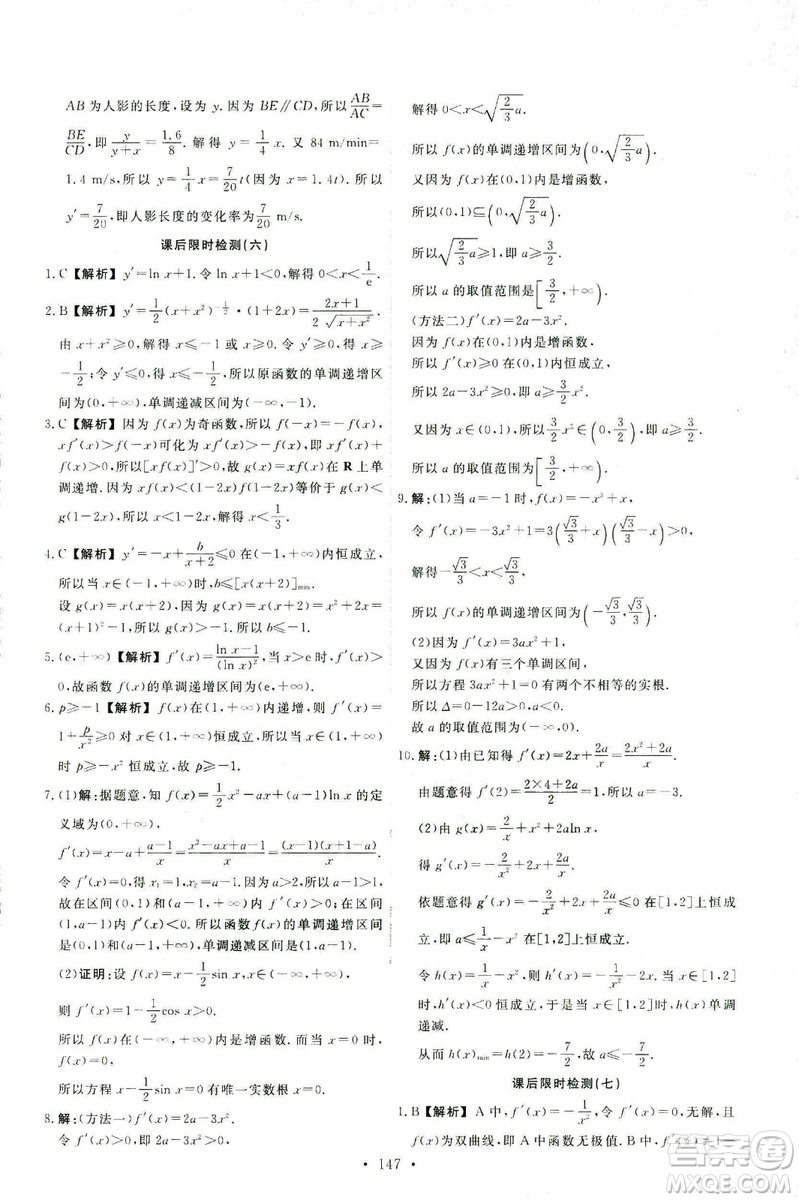 AB 为人影的长度，设为 y. 因为 BE∥CD，所以 AB/AC =
BE/CD，即 y/(y+x) = 1.6/8. 解得 y = 1/4 x. 又 84 m/min =
1.4 m/s，则 y = 7/20 t(因为 x = 1.4t). 所以
y′ = 7/20，即人影长度的变化率为 7/20 m/s.
课后限时检测(六)
1. C 【解析】 y′=ln x+1. 令 ln x+1<0，解得：0<x<1/e.
2. B 【解析】 y′=1/2 (x+x²)^(-1/2)·(1+2x)=(2x+1)/(2√(x+x²)).
由 x+x²≥0，解得 x≤-1 或 x≥0. 令 y′≥0，解得
x≥0；令 y′≤0，解得 x≤-1. 所以原函数的单调递增区
间为(0，+∞)，单调递减区间为(-∞，-1).
3. C 【解析】 因为 f(x)为奇函数，所以 f(x)=-f(-x)，
xf′(x)>f(-x)可化为 xf′(x)>-f(x)，即 xf′(x)+f(x)
>0，所以[xf(x)]′>0，故 g(x)=xf(x)在 R 上单
调递增. 由 xf(x)<(1-2x)f(1-2x)等价于 g(x)<
g(1-2x)，所以 x<1-2x，故 x<1/3.
4. C 【解析】 y′=-x+b/(x+2)≤0 在(-1，+∞)内恒成立，
所以当 x∈(-1，+∞)时，b≤[x(x+2)]min.
设 g(x)=x(x+2)，x∈(-1，+∞)，则 g(x)=
(x+1)²-1，所以 g(x)>-1. 所以 b≤-1.
5. (e，+∞) 【解析】 f′(x)=(ln x-1)/(ln x)². 当 x>e 时，f′(x)>
0，故函数 f(x)的单调递增区间为(e，+∞).
6. p≥-1 【解析】 f(x)在(1，+∞)内递增，则 f′(x)=
1+p/x²≥0 对 x>1 恒成立，即 p≥-x². 所以当 x>1
时 p≥-x² 恒成立，故 p≥-1.
7. (1)解：据题意，知 f(x)=1/2 x²-ax+(a-1)ln x 的定
义域为(0，+∞)，
f′(x)=x-a+(a-1)/x=(x²-ax+a-1)/x=(x-1)(x+1-a)/x.
令 f′(x)=0，得 x₁=1，x₂=a-1. 因为 a>2，所以 a-1>1.
故在区间(0，1)和(a-1，+∞)内 f′(x)>0；在区
间(1，a-1)内 f′(x)<0. 所以函数 f(x)的单调递增区间
是(0，1)和(a-1，+∞)，单调递减区间是(1，a-1).
(2)证明：设 f(x)=x-1/2 sin x，x∈(-∞，+∞)，
则 f′(x)=1-1/2 cos x>0.
所以 f(x)在(-∞，+∞)内是增函数. 而当 x=0 时，
f(x)=0，
所以方程 x-1/2 sin x=0 有唯一实数根 x=0.
8. 解：(方法一)f′(x)=2a-3x².
令 f′(x)>0，得 2a-3x²>0，所以 x²<2/3 a.
解得 0<x<√(2/3 a).
所以 f(x)的单调递增区间为(0，√(2/3 a)).
又因为 f(x)在(0，1)内是增函数，
所以(0，1)⊆(0，√(2/3 a)].
所以√(2/3 a)≥1，即 a≥3/2.
所以 a 的取值范围是[3/2，+∞).
(方法二)f′(x)=2a-3x².
因为 f(x)在(0，1)内是增函数，
所以 f′(x)≥0 在(0，1)内恒成立，
所以 2a-3x²≥0，即 a≥3/2 x².
又因为 x∈(0，1)，所以 3/2 x²∈(0，3/2)，所以 a≥3/2.
所以 a 的取值范围是[3/2，+∞).
9. 解：(1)当 a=-1 时，f(x)=-x³+x，
令 f′(x)=-3x²+1=3(√3/3+x)(√3/3-x)>0，
解得-√3/3<x<√3/3，
所以 f(x)的单调递增区间为(-√3/3，√3/3).
(2)因为 f′(x)=3ax²+1，
又因为 f(x)有三个单调区间，
所以方程 3ax²+1=0 有两个不相等的实根.
所以 Δ=0-12a>0，所以 a<0.
故 a 的取值范围为(-∞，0).
10. 解：(1)由已知得 f′(x)=2x+2a/x=(2x²+2a)/x.
由题意得 f′(2)=(2×4+2a)/2=1，所以 a=-3.
(2)由 g(x)=2/x+x²+2aln x，
得 g′(x)=-2/x²+2x+2a/x.
依题意得 g′(x)≤0，即-2/x²+2x+2a/x≤0 在[1，2]上恒成
立，即 a≤1/x-x² 在[1，2]上恒成立.
令 h(x)=1/x-x²，则 h′(x)=-1/x²-2x，当 x∈[1，2]
时，h′(x)<0 恒成立，于是当 x∈[1，2]时，h(x)单调
递减.
从而 h(x)min=h(2)=-7/2，故 a≤-7/2.
课后限时检测(七)
1. B 【解析】 A 中，f′(x)=-1/x²，令 f′(x)=0，无解，且
f(x)为双曲线，即 A 中函数无极值. B 中，f′(x)=
147
答案圈
MXQE.COM